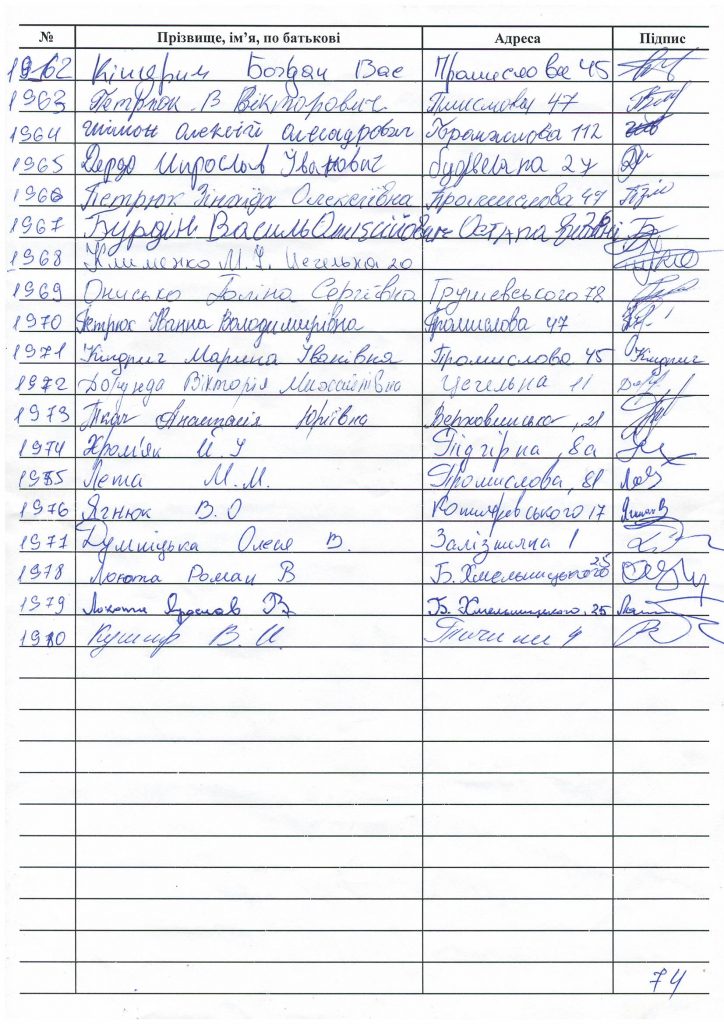 № Прізвище, ім’я, по батькові Адреса Підпис
1962 Богдан Вас Промислова 45
1963 Петрюк В Вікторович 47
1964 Олексій 112
1965 Дердо Мирослав Іванович 27
1966 Петрюк Зінаїда Олексіївна Промислова 49
1967 Бурдін Василь Остапа
1968 Клименко М Цегельна 20
1969 Онисько Галіна Сергіївна Грушевського 78
1970 Петрюк Іванна Володимирівна Промислова 47
1971 Кіндриг Марина Іванівна Промислова 45 Кіндриг
1972 Вікторія Михайлівна Цегельна 11
1973 Ткач Анастасія Юріївна 21
1974 Хром'як Й. У Підгірна, 8а
1975 Лета М.М. Промислова, 81
1976 Ягнюк В.О 17
1977 Думніцька Олеся В. Залізнична 1
1978 Локота Роман В Б. Хмельницького 25
1979 Локота Ярослав В Б. Хмельницького, 25
1980 Кушнір В. И. Тичини 4
74